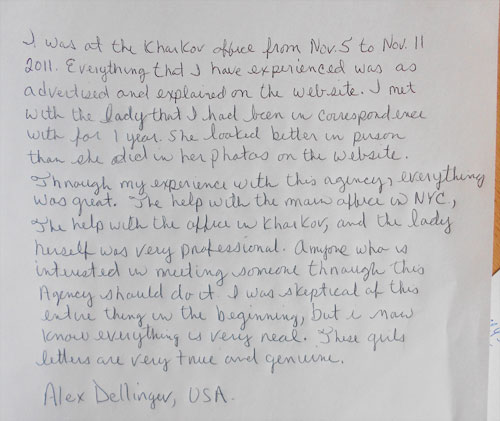 I was at the Kharkov office from Nov. 5 to Nov. 11
2011. Everything that I have experienced was as
advertised and explained on the web-site. I met
with the lady that I had been in correspondence
with for 1 year. She looked better in person
than she did in her photos on the website.
Through my experience with this agency, everything
was great. The help with the main office in NYC,
The help with the office in Kharkov, and the lady
herself was very professional. Anyone who is
interested in meeting someone through this
Agency should do it. I was skeptical of this
entire thing in the beginning, but i now
know everything is very real. These girls
letters are very true and genuine.
Alex Dellinger, USA.